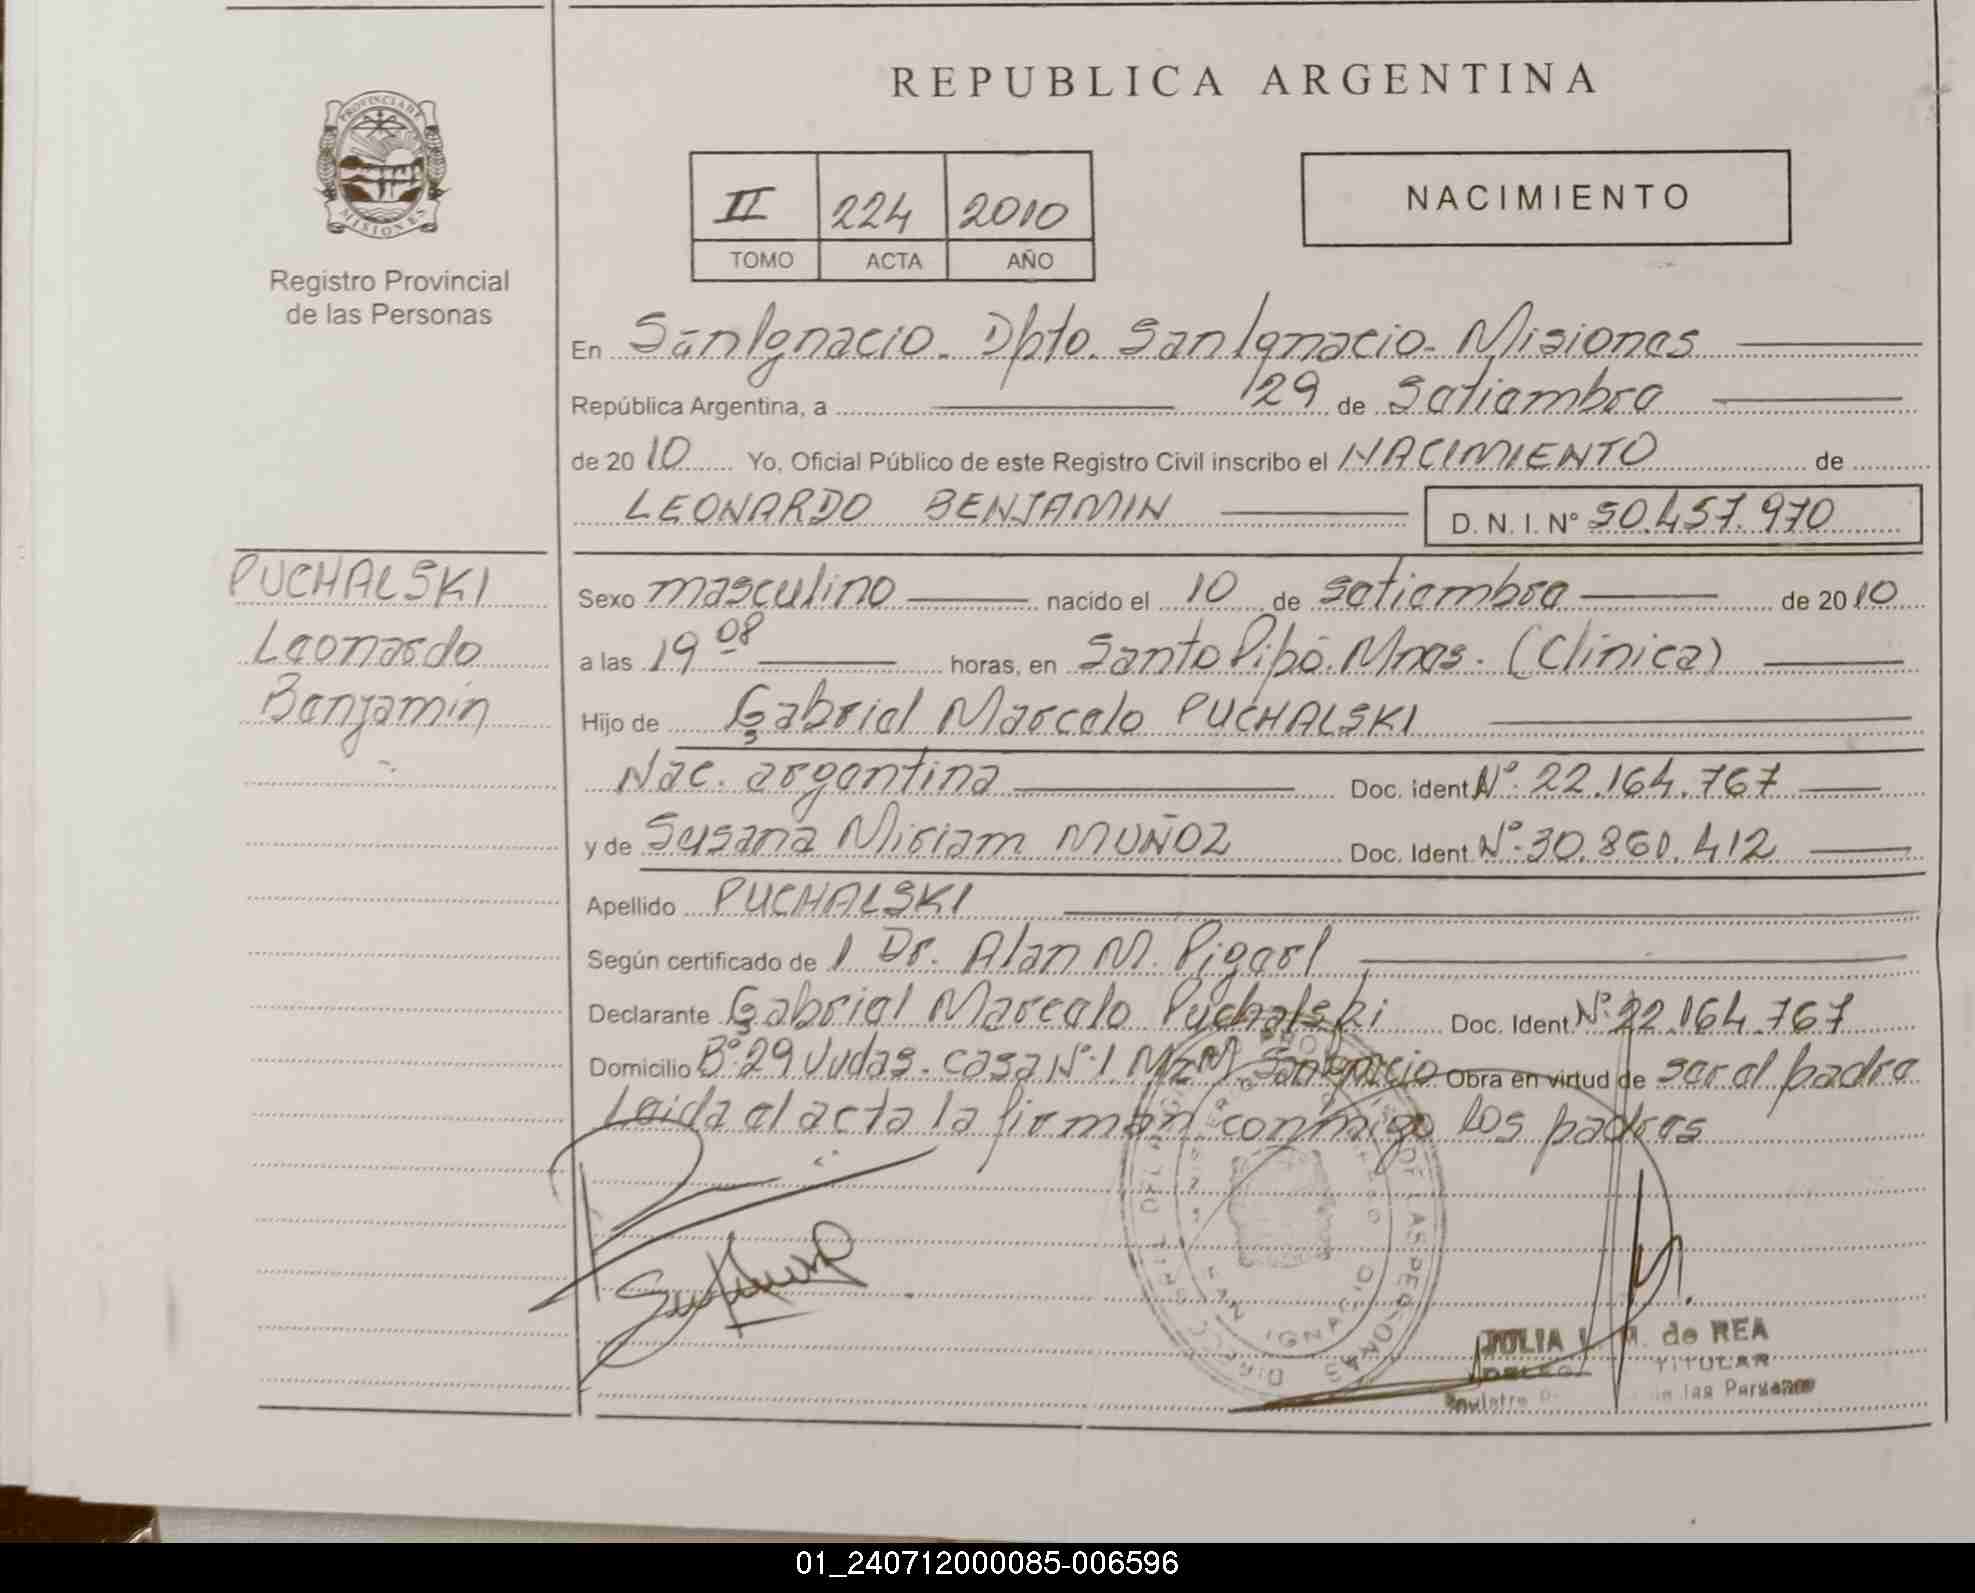 REPUBLICA ARGENTINA
PROVINCIA DE
MISIONES
Registro Provincial
de las Personas
II 224 2010
TOMO ACTA AÑO
NACIMIENTO
En San Ignacio. Dpto. San Ignacio. Misiones
República Argentina, a 29 de Setiembre
de 2010 Yo, Oficial Público de este Registro Civil inscribo el NACIMIENTO de
LEONARDO BENJAMIN D. N. I. Nº 50.457.970
PUCHALSKI
Leonardo
Benjamin
Sexo masculino nacido el 10 de setiembre de 2010
a las 19 08 horas, en Santo Pipó. Mnes. (Clinica)
Hijo de Gabriel Marcelo PUCHALSKI
Nac. argentina Doc. ident Nº 22.164.767
y de Susana Miriam MUÑOZ Doc. Ident. Nº 30.860.412
Apellido PUCHALSKI
Según certificado de l Dr. Alan M.
Declarante Gabriel Marcelo Puchalski Doc. Ident. Nº 22.164.767
Domicilio Bº 29 Vvdas. casa Nº 1 Mz M San Ignacio Obra en virtud de ser el padre
Leida el acta la firman conmigo los padres
SAN IGNACIO
DE LAS PERSONAS
JULIA M. de REA
TITULAR
01_240712000085-006596